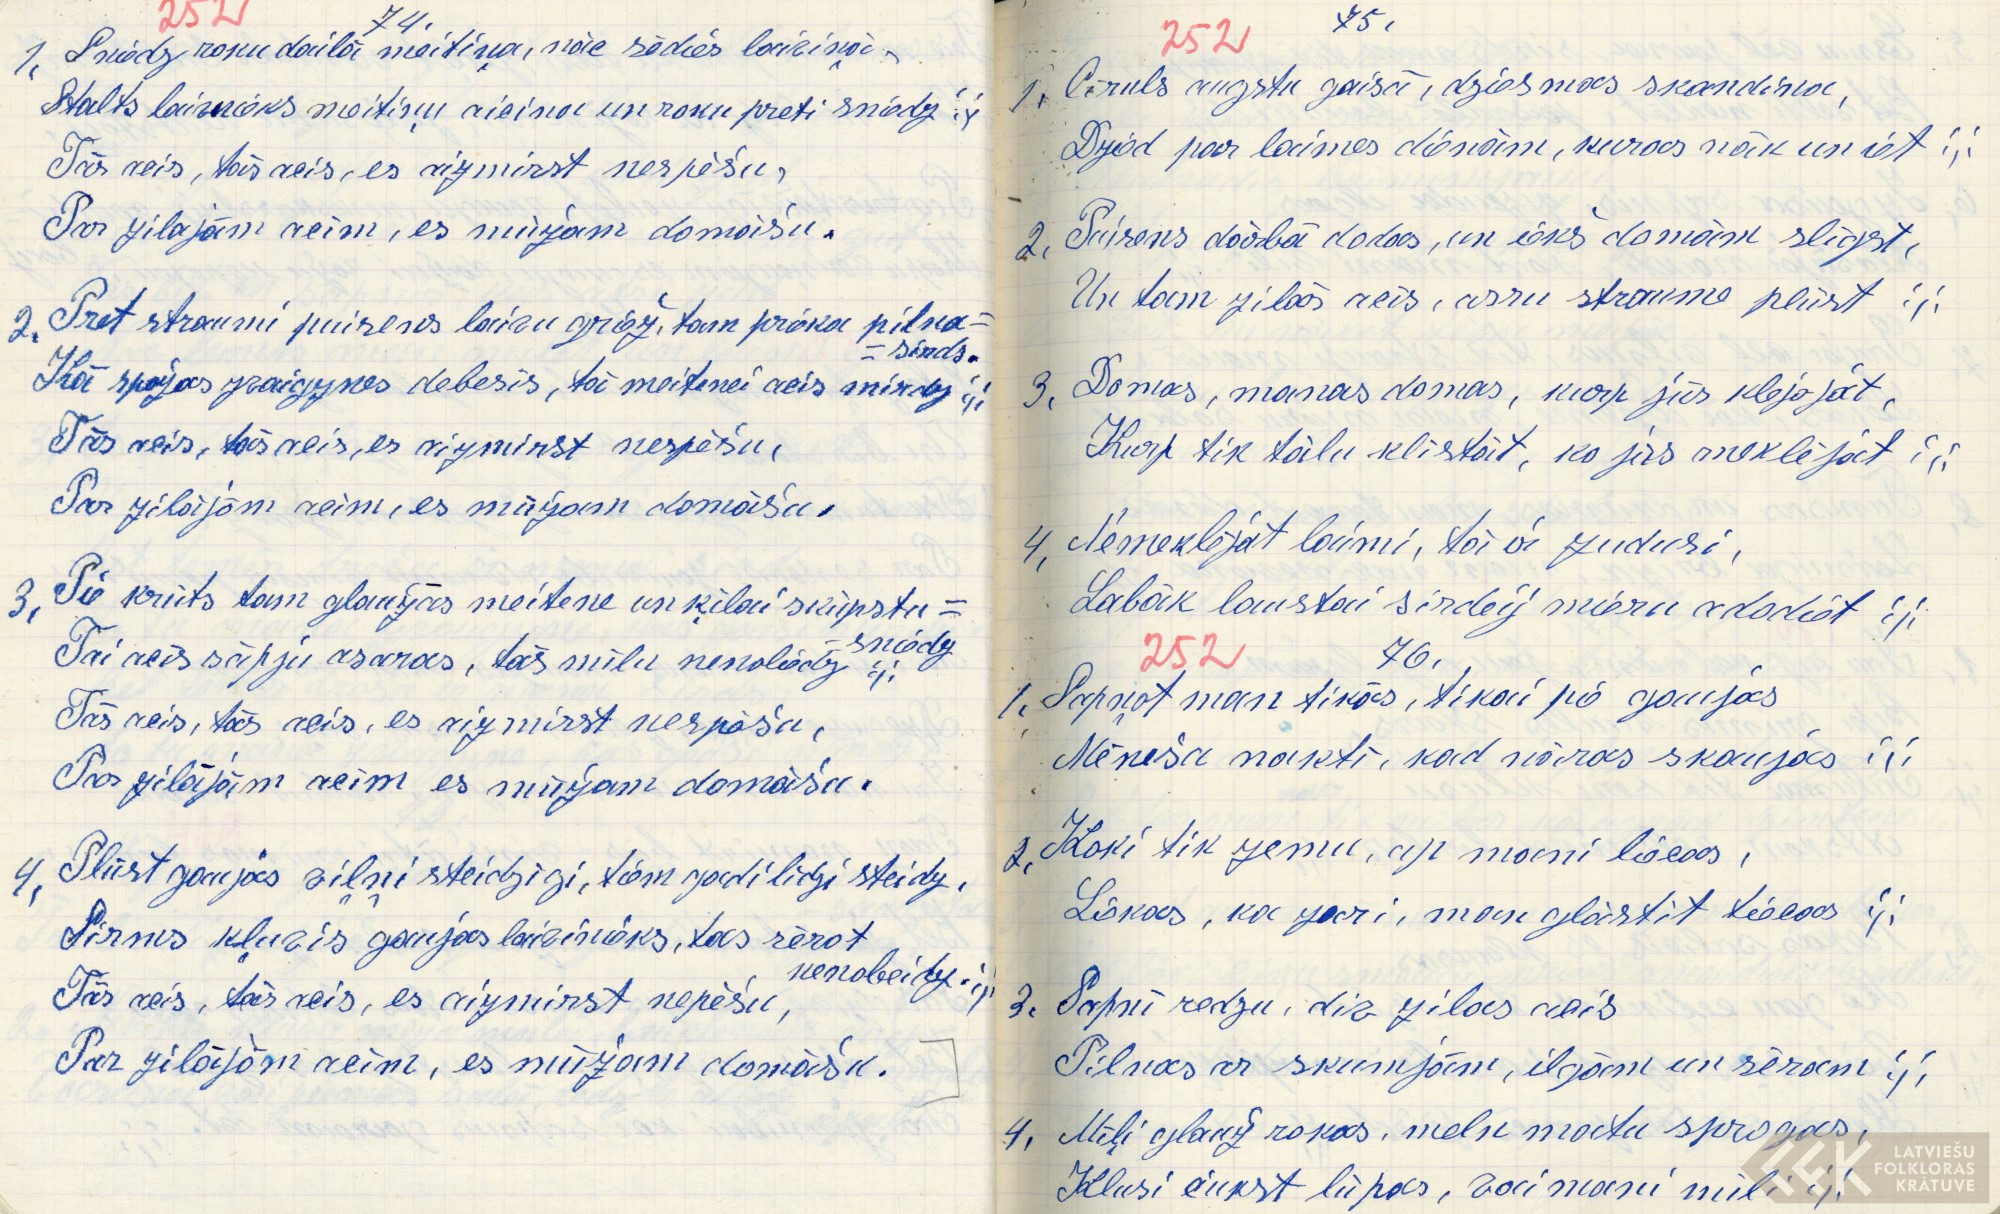 252
74.
1, Sniedz roku daiļā meitiņa, nāc sēdies laiviņā,
Stalts laivinieks meitiņu aicina un roku preti sniedz :,:
Tās acis, tās acis, es aizmirst nespēšu,
Par zilajām acīm, es mūžam domāšu.
2. Pret straumi puisens laivu griež, tam prieka pilna=
= sirds.
Kā spožas zvaigznes debesīs, tā meitenei acis mirdz :,:
Tās acis, tās acis, es aizmirst nespēšu,
Par zilājām acīm, es mūžam domāšu.
3, Pie krūts tam glaužās meitene un ķīlai skūpstu =
sniedz
Tai acīs sāpju asaras, tās mīlu nenoliedz :,:
Tās acis, tās acis, es aizmirst nespēšu,
Par zilājām acīm es mūžam domāšu.
4, Plūst gaujas viļņi steidzīgi, tiem gadi līdzi steidz,
Sirms kļuvis gaujas laivinieks, tas sērot
nenobeidz. :,:
Tās acis, tās acis, es aizmirst nepēšu,
Par zilājām acīm, es mūžam domāšu.
252
75,
1, Cīruls augstu gaisā, dziesmas skandina,
Dzied par laimes dienām, kuras nāk un iet :,:
2, Puisens dārbā dodas, un iekš domām slīgst,
Un tam zilās acis, asru straume plūst :,:
3, Domas, manas domas, kurp jūs klejojat,
Kurp tik tālu klīstāt, ko jūs meklējat :,:
4, Nemeklējāt laimi, tā ir zudusi,
Labāk laustai sirdij mieru adodiet :,:
252
76.
1, Sapņot man tikās, tikai pie gaujas
Mēneša naktī, kad nāras skaujas :,:
2, Koki tik zemu, ap mani liecas,
Liekas, ka zari, man glāstīt tiecas :,:
3. Sapnī redzu, div zilas acis
Pilnas ar skumjām, ilgām un sēram :,:
4, Mīļi glauž rokas, melnu matu sprogas,
Klusi čukst lūpas, vai mani mīli :,:
LATVIEŠU
FOLKLORAS
KRĀTUVE